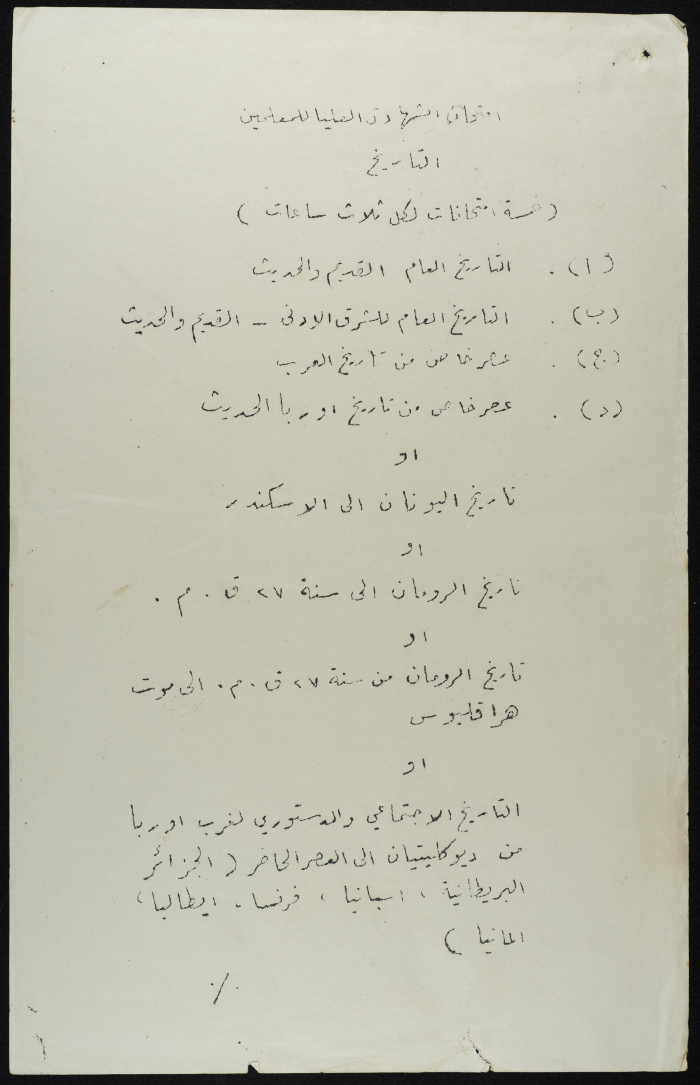 امتحان الشهادة العليا للمعلمين
التاريخ
(خمسة امتحانات لكل ثلاث ساعات)
(ا) . التاريخ العام القديم والحديث
(ب) . التاريخ العام للشرق الادنى – القديم والحديث
(ج) . عصر خاص من تاريخ العرب
(د) . عصر خاص من تاريخ اوربا الحديث
او
تاريخ اليونان الى الاسكندر
او
تاريخ الرومان الى سنة ٢٧ ق . م .
او
تاريخ الرومان من سنة ٢٧ ق . م . الى موت
هراقليوس
او
التاريخ الاجتماعي والدستوري لغرب اوربا
من ديوكليتيان الى العصر الحاضر (الجزائر
البريطانية ، اسبانيا ، فرنسا . ايطاليا ،
المانيا )
./.